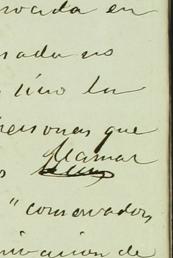 vocada en
sado no
sino la
personas que
llamar
" conservador,
nivacion de